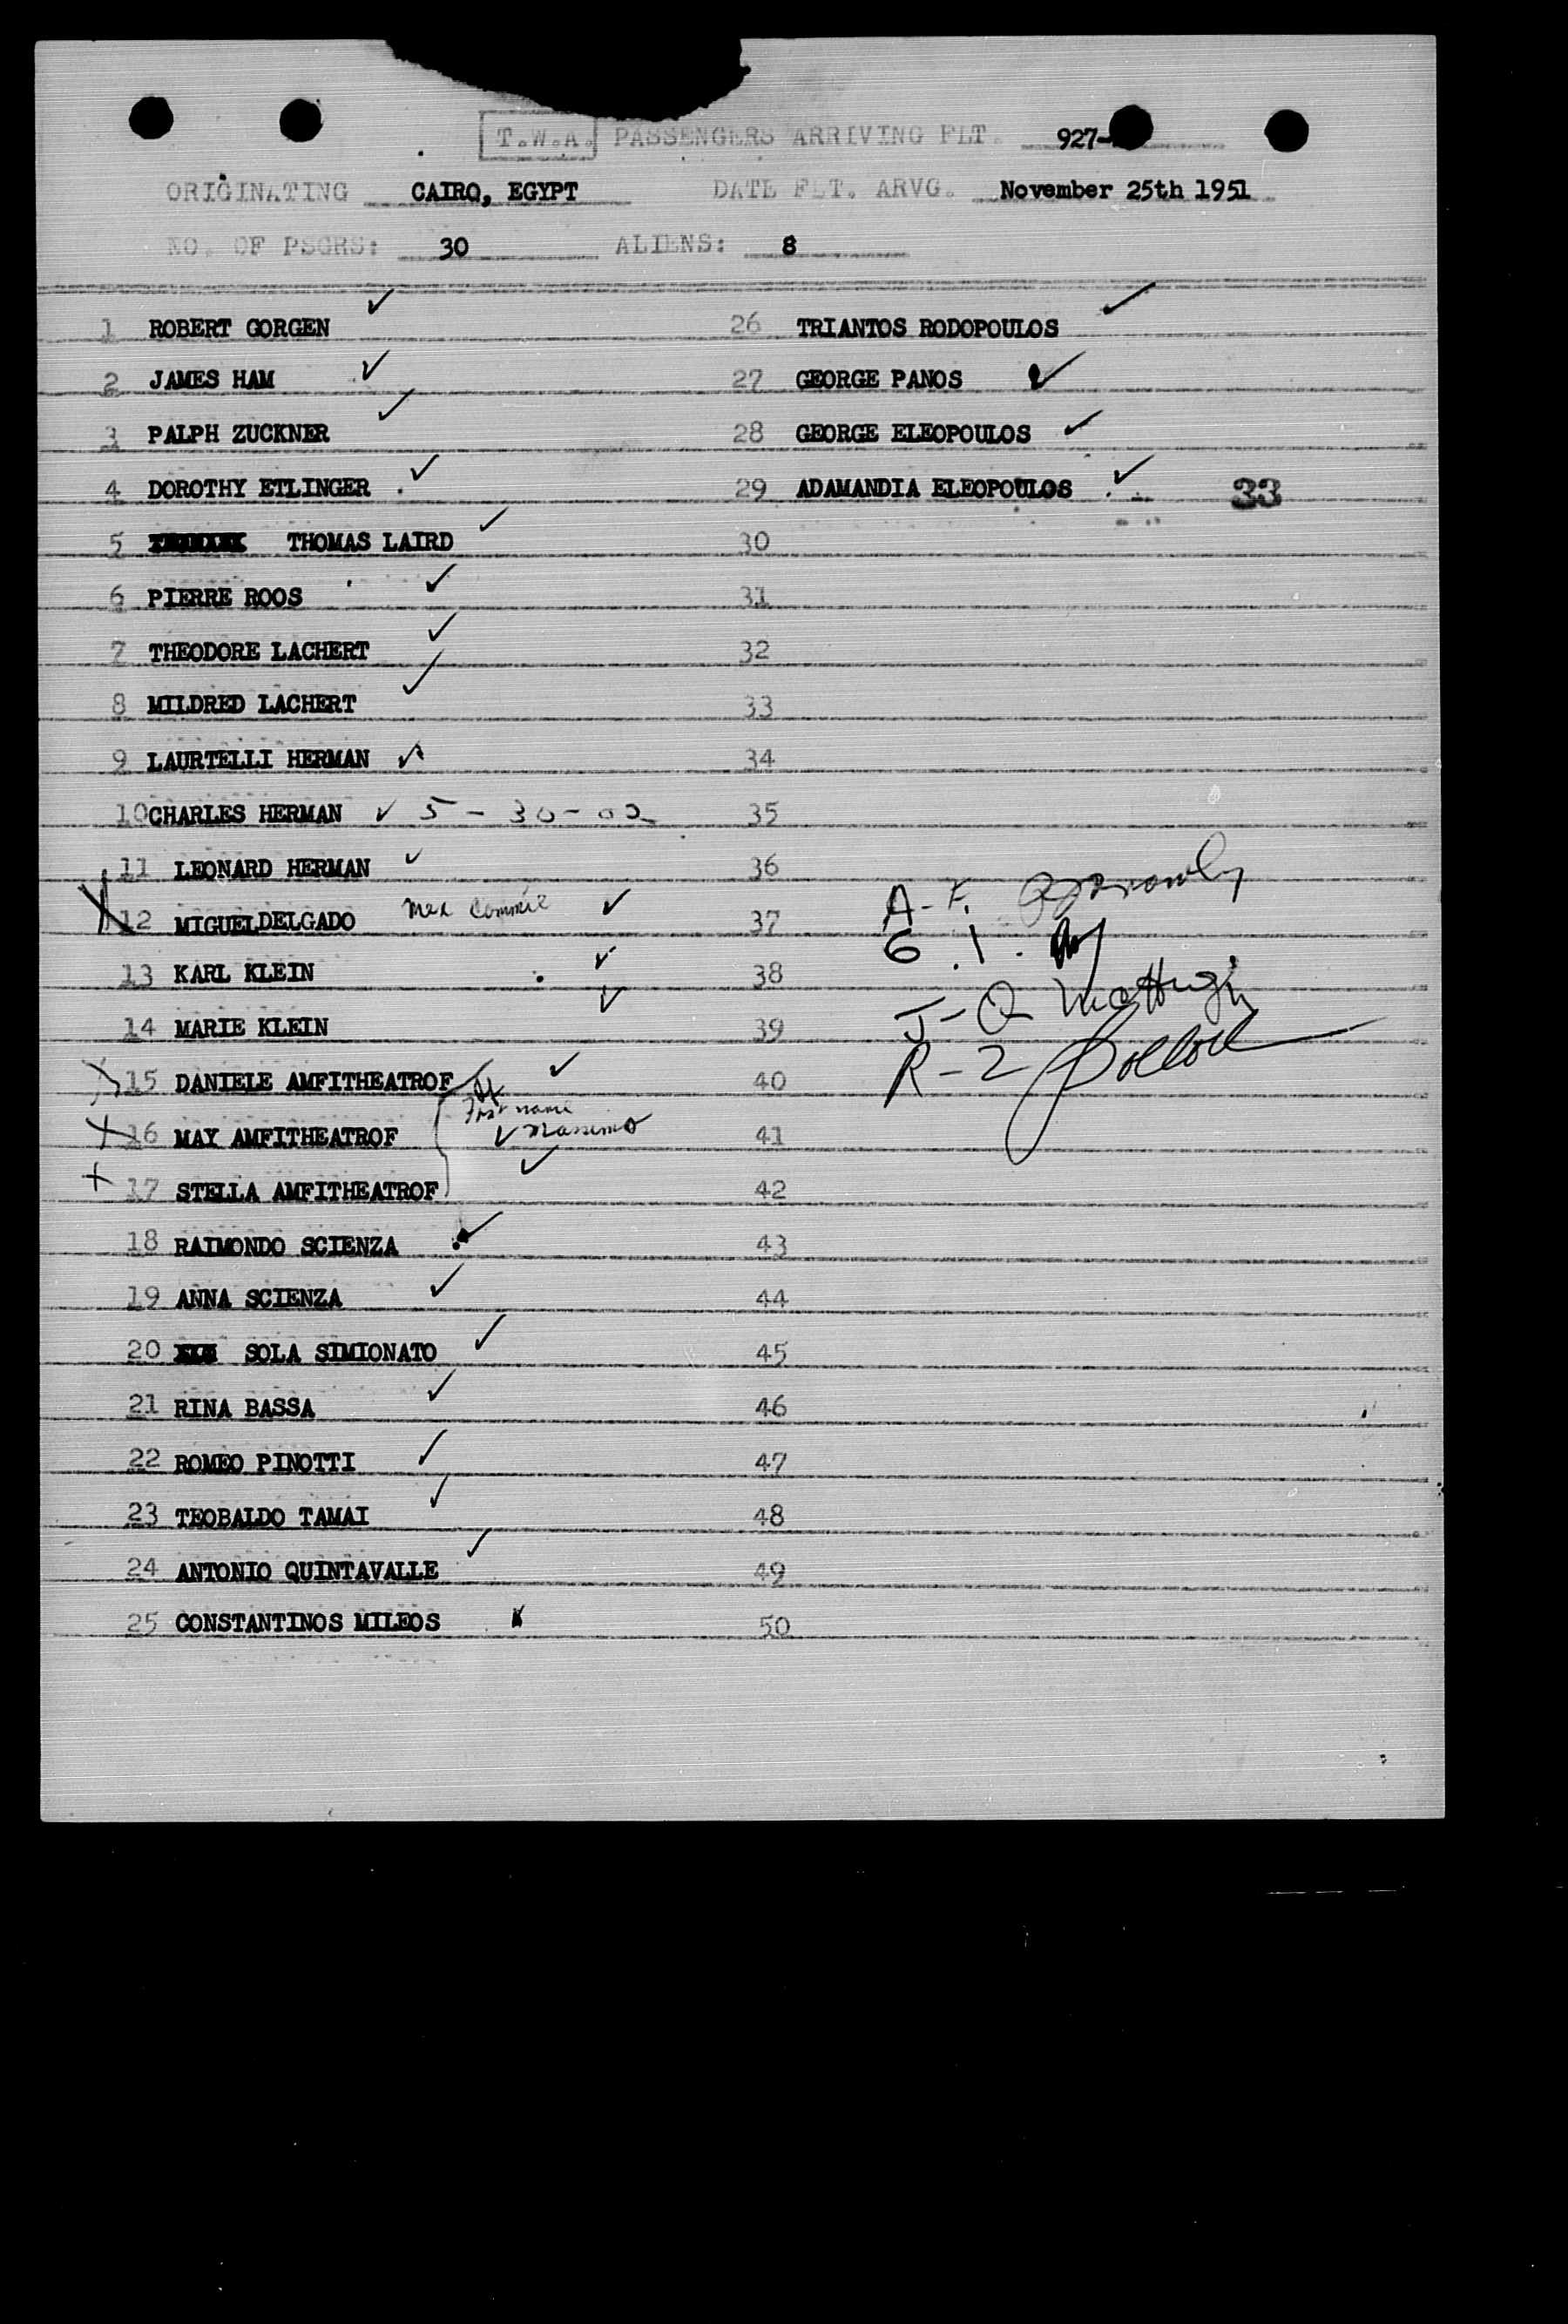 T.W.A. PASSENGERS ARRIVING FLT. 927-
ORIGINATING CAIRO, EGYPT DATE FLT. ARVG. November 25th 1951
NO. OF PSGRS: 30 ALIENS: 8
1 ROBERT GORGEN
2 JAMES HAM
3 PALPH ZUCKNER
4 DOROTHY ETLINGER
5 THOMAS LAIRD
6 PIERRE ROOS
7 THEODORE LACHERT
8 MILDRED LACHERT
9 LAURTELLI HERMAN
10 CHARLES HERMAN 5-30-02
11 LEONARD HERMAN
12 MIGUEL DELGADO Mex Commie
13 KARL KLEIN
14 MARIE KLEIN
15 DANIELE AMFITHEATROF
First name
16 MAY AMFITHEATROF Massimo
17 STELLA AMFITHEATROF
18 RAIMONDO SCIENZA
19 ANNA SCIENZA
20 SOLA SIMIONATO
21 RINA BASSA
22 ROMEO PINOTTI
23 TEOBALDO TAMAI
24 ANTONIO QUINTAVALLE
25 CONSTANTINOS MILEOS
26 TRIANTOS RODOPOULOS
27 GEORGE PANOS
28 GEORGE ELEOPOULOS
29 ADAMANDIA ELEOPOULOS 33
30
31
32
33
34
35
36
37 A-F.
38 G.1.
39 J-Q McHugh
40 R-Z
41
42
43
44
45
46
47
48
49
50